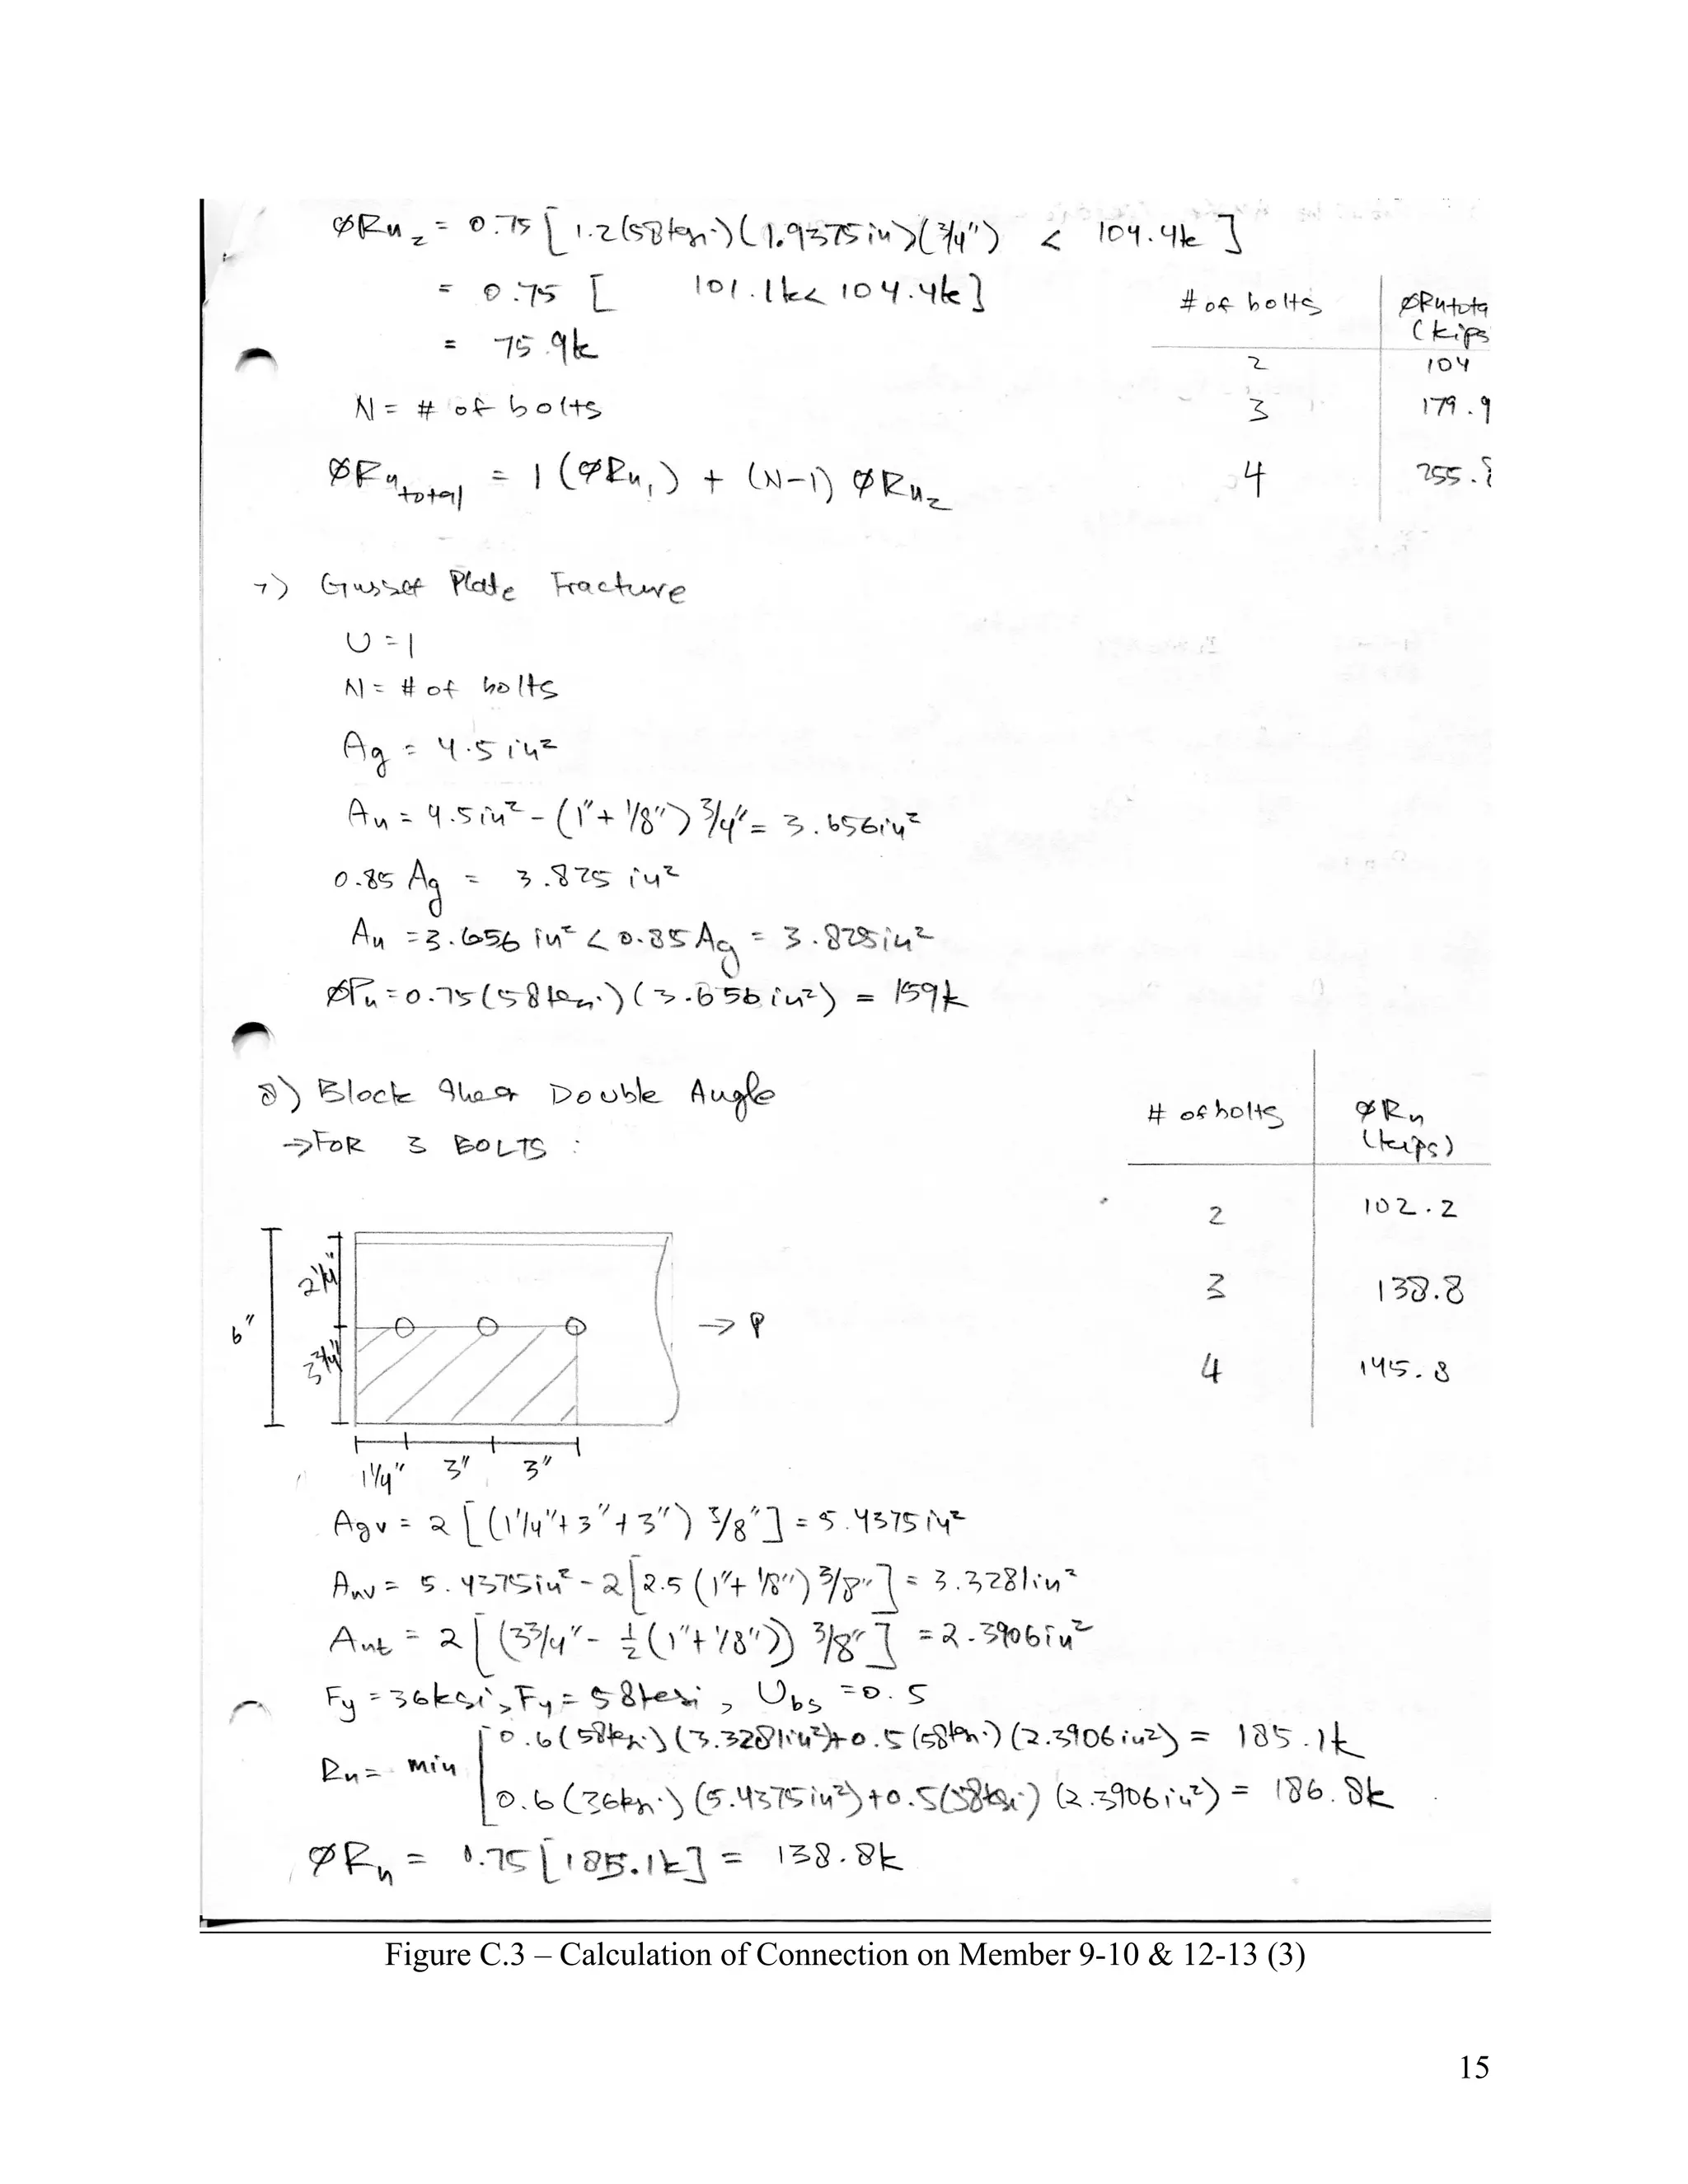 ØRn₂ = 0.75 [ 1.2(58ksi)(1.9375in)(3/4") < 104.4k ]
= 0.75 [ 101.1k < 104.4k ]
= 75.9k
N = # of bolts
ØRn total = 1 (ØRn₁) + (N-1) ØRn₂
# of bolts ØRntota
(kips
2 104
3 179.9
4 255.8
7) Gusset Plate Fracture
U = 1
N = # of bolts
Ag = 4.5 in²
An = 4.5in² - (1" + 1/8") 3/4" = 3.656in²
0.85 Ag = 3.825 in²
An = 3.656 in² < 0.85 Ag = 3.825in²
ØPn = 0.75(58ksi)(3.656in²) = 159k
8) Block Shear Double Angle
→FOR 3 BOLTS :
# of bolts ØRn
(kips)
2 102.2
3 138.8
4 145.8
6"
2 1/4"
3 3/4"
→ P
1 1/4" 3" 3"
Agv = 2 [ (1 1/4" + 3" + 3") 3/8" ] = 5.4375in²
Anv = 5.4375in² - 2[2.5 (1" + 1/8") 3/8"] = 3.3281in²
Ant = 2[ (3 3/4" - 1/2 (1" + 1/8")) 3/8" ] = 2.3906in²
Fy = 36ksi, Fu = 58ksi, Ubs = 0.5
Rn = min [ 0.6(58ksi)(3.3281in²)+0.5(58ksi)(2.3906in²) = 185.1k
0.6(36ksi)(5.4375in²)+0.5(58ksi)(2.3906in²) = 186.8k
ØRn = 0.75[185.1k] = 138.8k
Figure C.3 – Calculation of Connection on Member 9-10 & 12-13 (3)
15